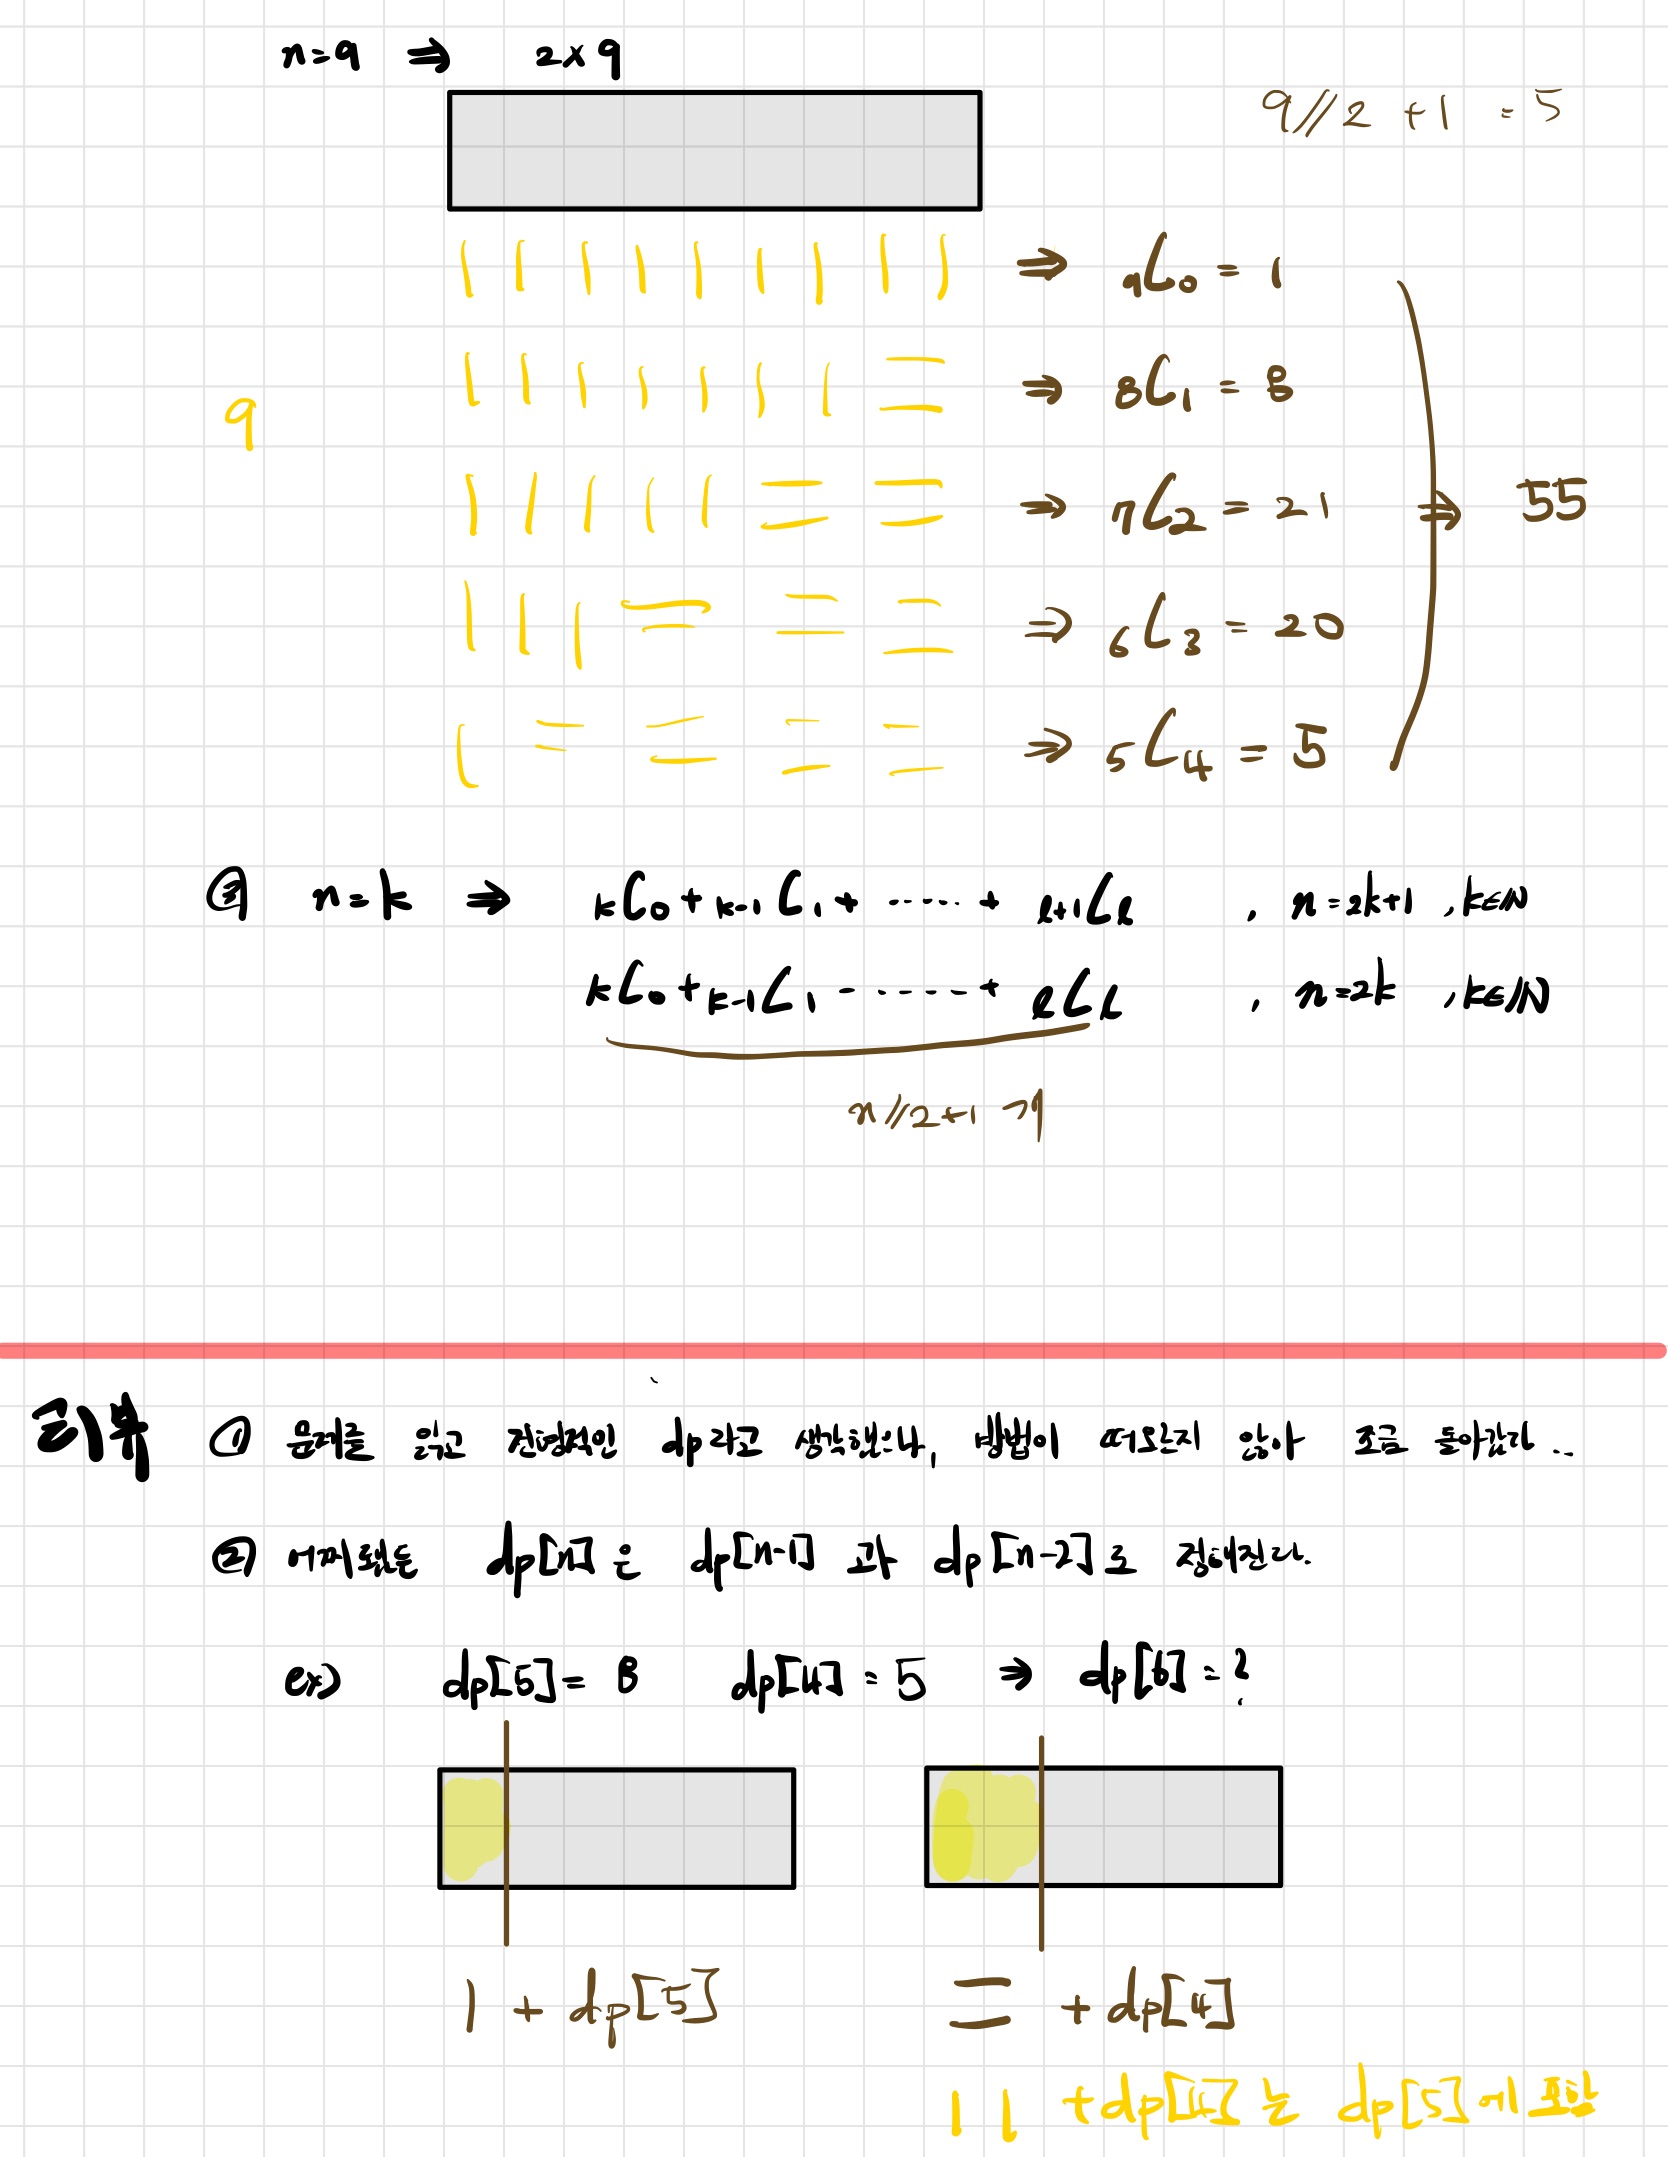 n=9 ⇒ 2×9
9//2 +1 = 5
⇒ ₉C₀ = 1
⇒ ₈C₁ = 8
9
⇒ ₇C₂ = 21
⇒ 55
⇒ ₆C₃ = 20
⇒ ₅C₄ = 5
③ n=k ⇒ ₖC₀ + ₖ₋₁C₁ + ····· + ₗ₊₁Cₗ , n=2k+1 , k∈ℕ
ₖC₀ + ₖ₋₁C₁ ······ + ₗCₗ , n=2k , k∈ℕ
n//2+1 개
리뷰 ① 문제를 읽고 전형적인 dp라고 생각했으나, 방법이 떠오르지 않아 조금 돌아갔다...
② 어찌됐든 dp[n]은 dp[n-1] 과 dp[n-2]로 정해진다.
ex) dp[5] = 8 dp[4] = 5 ⇒ dp[6] = ?
| + dp[5] = + dp[4]
|| + dp[4]는 dp[5]에 포함